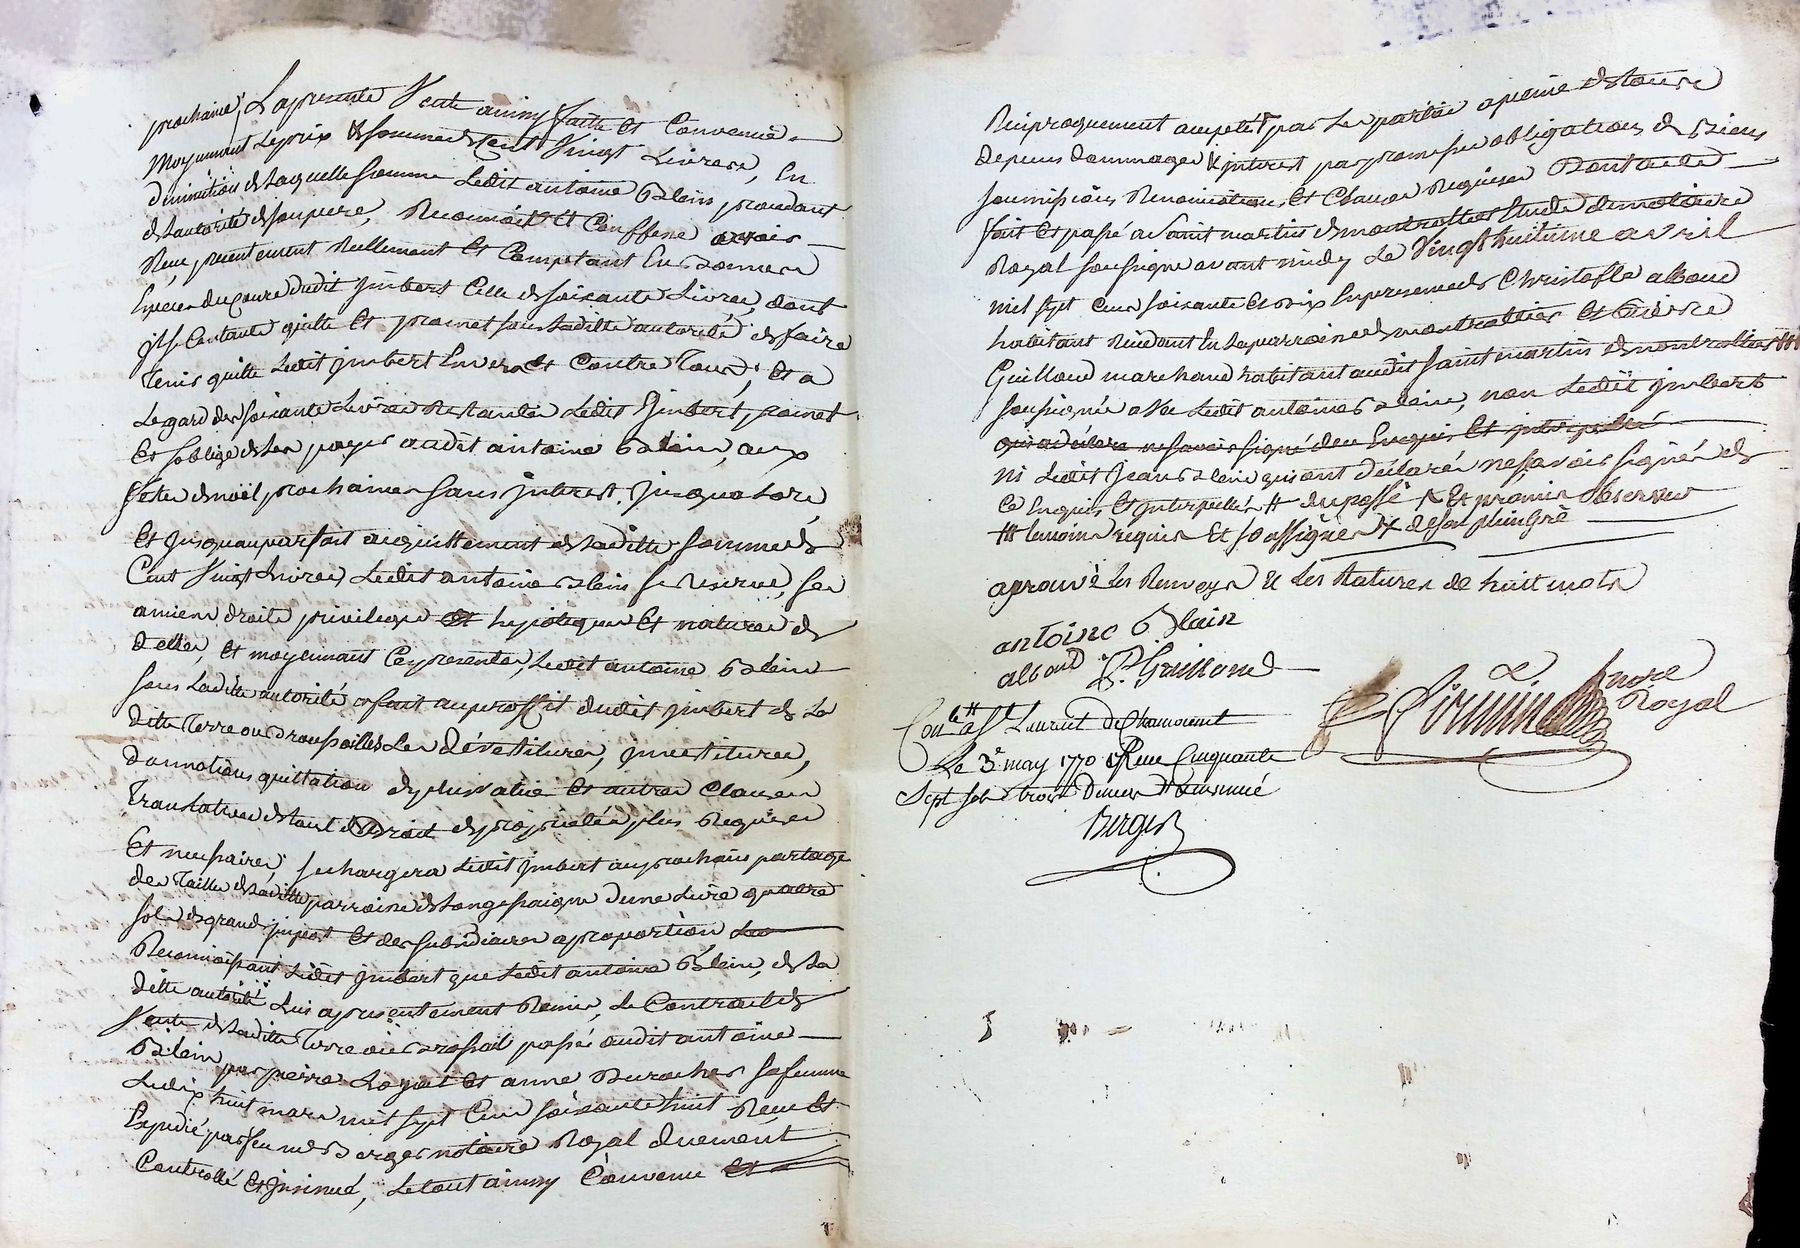 prochaine, La presente Vente ainsy faitte et Convenue
Moyennant Le prix & somme de Cent Vingt Livres, En
diminution de Laquelle somme Ledit antoine Blein procedant
de L'autorité de son pere, Reconnoit et Confesse avoir
Reçu presentement Reellement et Comptant En bonnes
Especes du Cours dudit jmbert Celle de soixante Livres, dont
jl se Contante quitte et promet sous Laditte autorité de faire
Tenir quitte Ledit jmbert Envers et Contre Tous; Et a
Legard des soixante Livres Restantes Ledit Jmbert promet
Et soblige de Les payer audit antoine Blein, aux
fetes de noël prochaines sans jnterest jusqua Lors
Et jusquau parfait acquittement de Laditte somme de
Cent Vingt Livres Ledit antoine Blein se Reserve, ses
amiens droits privilege et hypoteques Et natures de
dettes, et moyennant Ces presentes, Ledit antoine Blein
sous Laditte autorité a fait au proffit dudit jmbert de La
ditte Terre ou Broussailles Les dévetitures, jnvetitures,
donnations quittation de plus value Et autres Clauses
Translatives de tout droit de proprietée plus Requises
Et necessaires; se chargera Ledit jmbert au prochain partage
des Tailles de Laditte parroisse de Longechaigne dune Livre quatre
sols de grand jmpost Et des subsidiaires a proportion
Reconnoissant Ledit jmbert que Ledit antoine Blein, de La
ditte autorité Luis a presentement Remis, Le Contract de
Vente de Laditte Terre ou Brossail passé audit antoine
Blein par pierre Loyat et anne Durochas sa femme
Le dix huit mars mil sept Cens soixante huit Reçu Et
Expedié par feu me Berger notaire Royal duement
Controllé Et jnsinué, Le tout ainsy Convenu et
Reciproquement accepté par Les parties a peine de tous
depens dommages & jnterest par promesses obligations de Biens
soumissions Renonciations, Et Clauses Requises Dont acte
fait et passé a Saint martin de montrottier Etude du notaire
Royal soussigné avant midy Le Vingt huitieme avril
mil sept Cens soixante et dix En presence de Christofle alboud
habitant Residant En la parroisse de montrottier Et Pierre
Guilloud marchand habitant audit saint martin de montrottier ##
soussignés avec Ledit antoine Blein, non Ledit jmbert
qui a déclaré ne savoir signé de ce Enquis Et jnterpellé
ni Ledit Jean Blein qui ont déclarés ne savoir signer de
Ce Enquis, et jnterpellés # du passé & Et promis observer
## temoins requis Et so assignés de son plein Gré
aprouvé les Renvoys & les Ratures de huit mots
antoine Blein
alboud P. Guilloud
Conle a St Laurent de Chamousset
Le 3e may 1770 Reçu Cinquante
Sept sols trois Deniers & Insinué
Berger
Pirmin nore
Royal